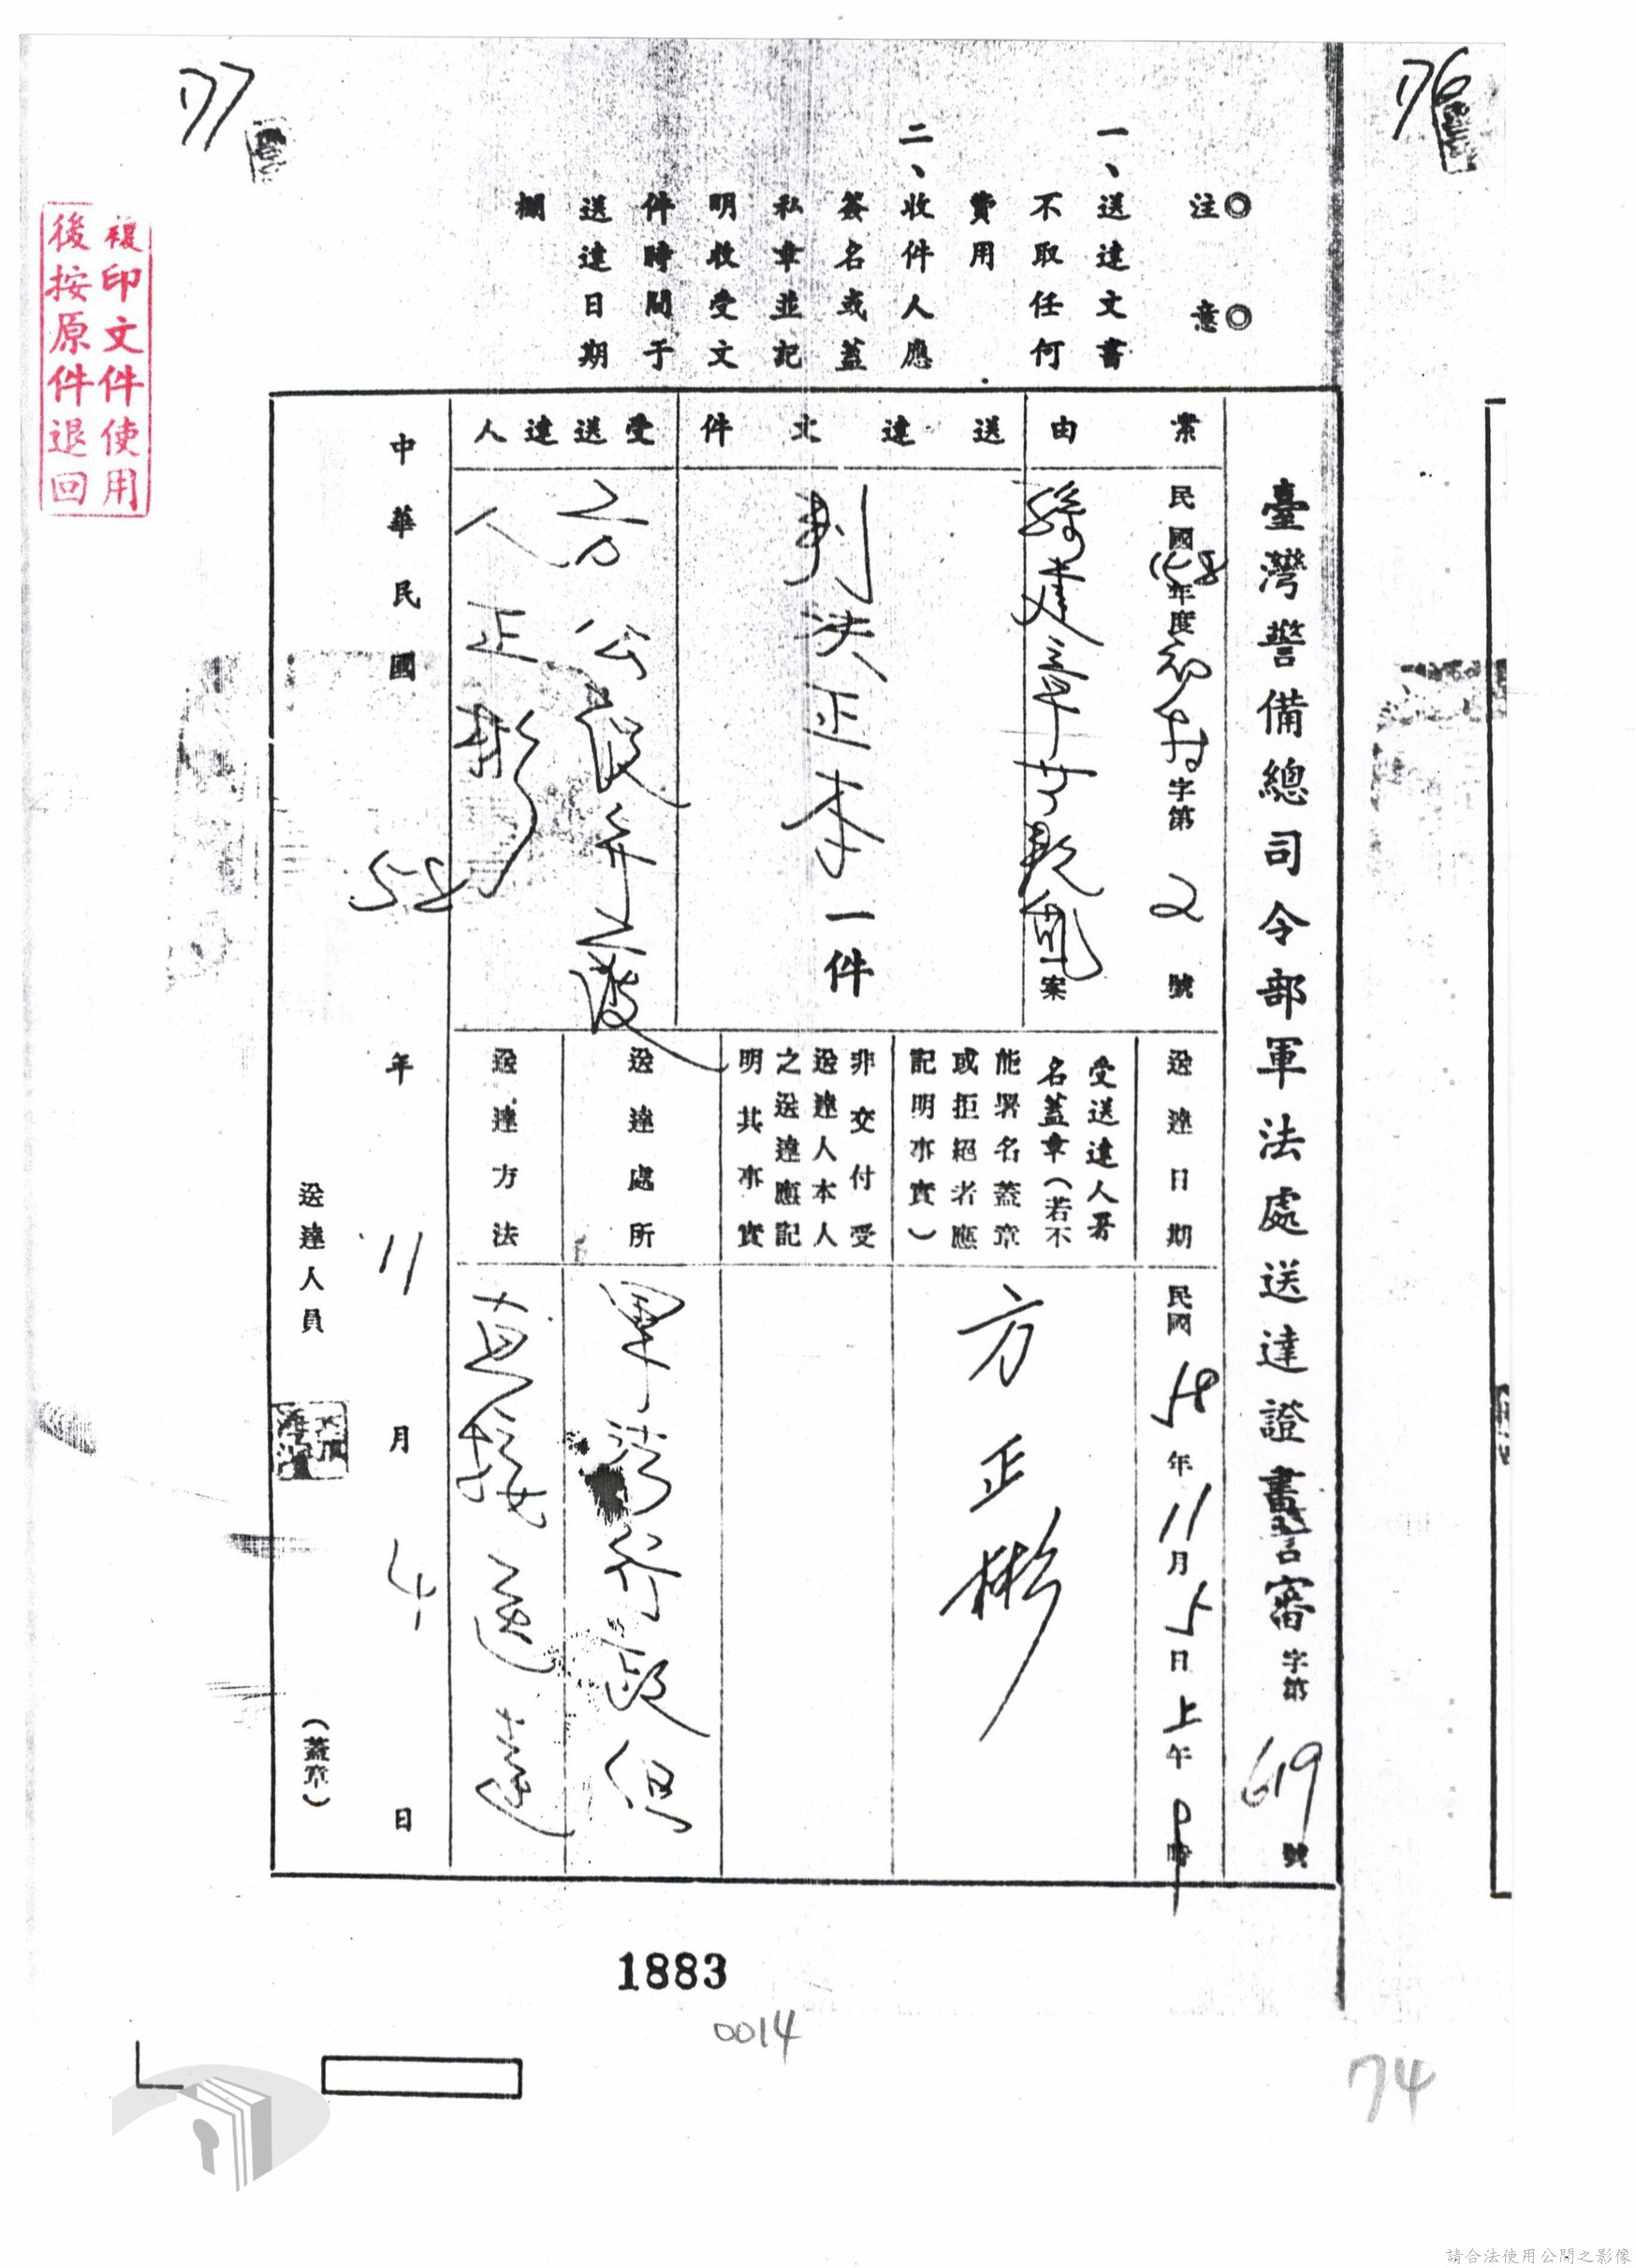 177
176
複印文件使用
後按原件退回
◎注意◎
一、送達文書
不取任何
費用
二、收件人應
簽名或蓋
私章並記
明收受文
件時間于
送達日期
欄
臺灣警備總司令部軍法處送達證書
審
字第
619
號
案由
民國58年度初特字第2號
案
送達文件
判決正本一件
受送達人
公設辯護
人方正彬
送達日期
民國58年11月5日上午
時
受送達人署
名蓋章(若不
能署名蓋章
或拒絕者應
記明事實)
方正彬
非交付受
送達人本人
之送達應記
明其事實
送達處所
軍法
送達方法
直接送達
中華民國58年11月4日
送達人員
(蓋章)
1883
0014
74
請合法使用公開之影像